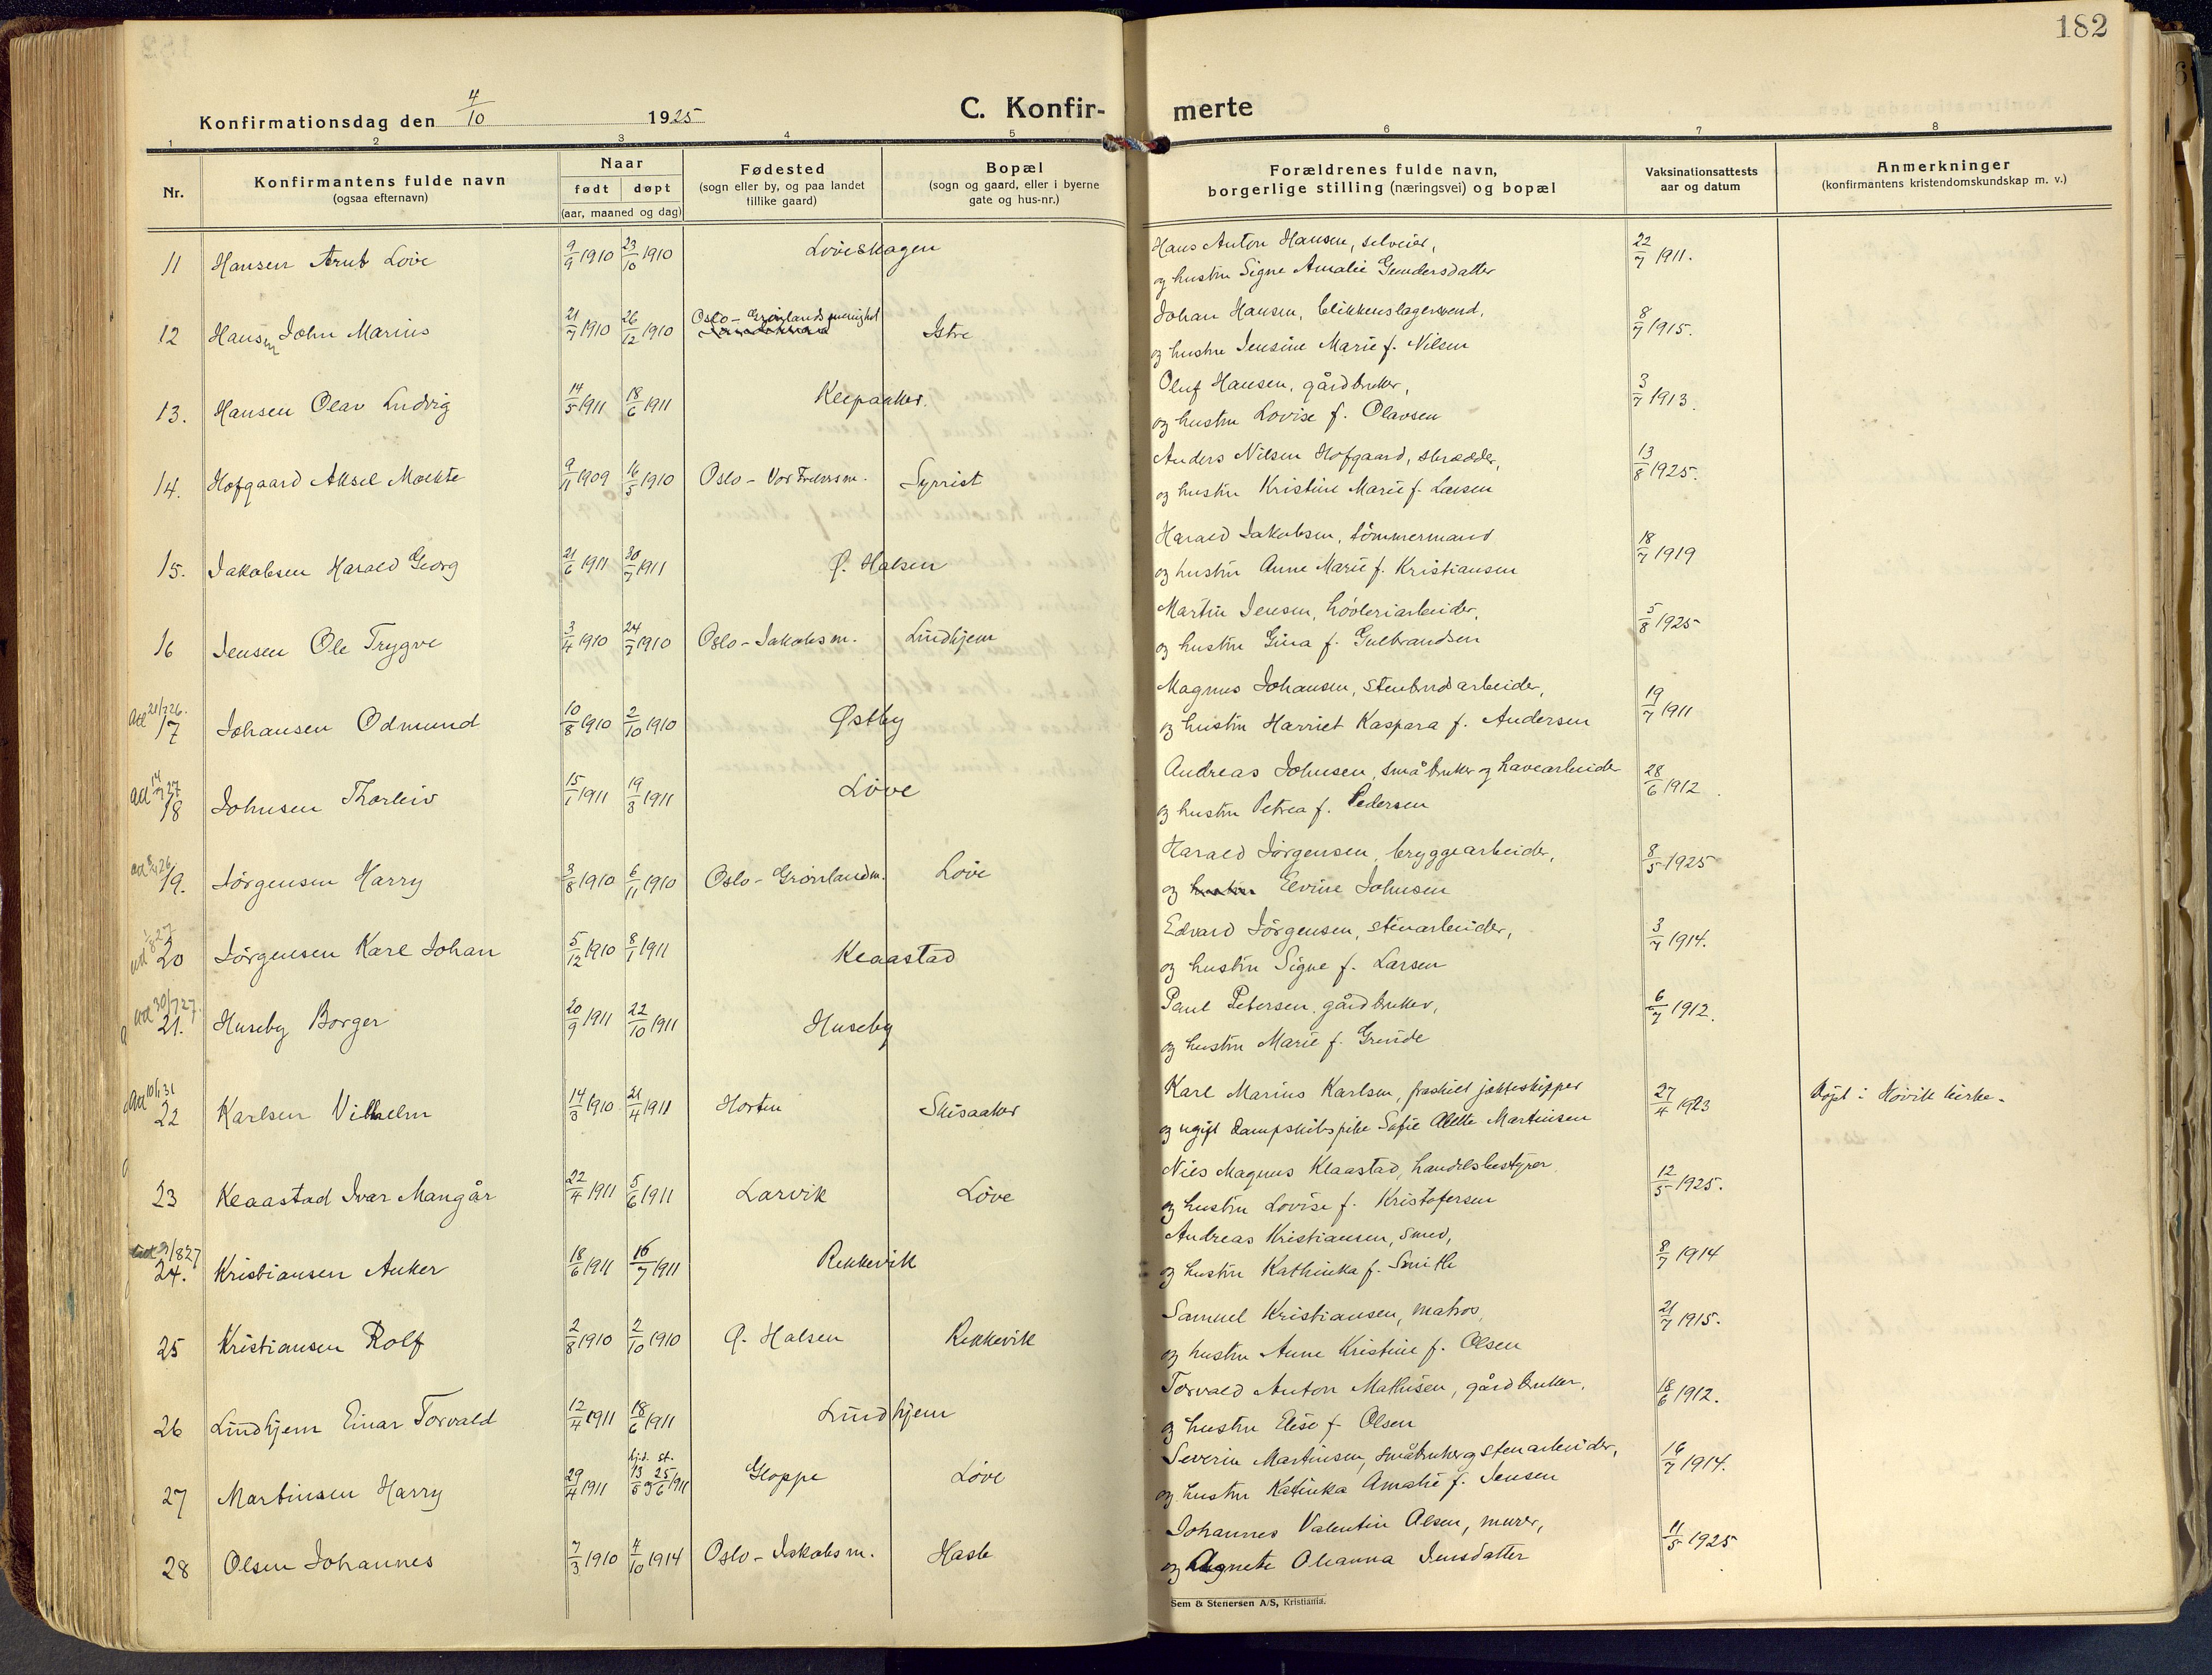 182
Konfirmationsdag den 4/10 1925
C. Konfir- merte
1 2 3 4 5 6 7 8
Nr.
Konfirmantens fulde navn
(ogsaa efternavn)
Naar
født døpt
(aar, maaned og dag)
Fødested
(sogn eller by, og paa landet
tillike gaard)
Bopæl
(sogn og gaard, eller i byerne
gate og hus-nr.)
Forældrenes fulde navn,
borgerlige stilling (næringsvei) og bopæl
Vaksinationsattests
aar og datum
Anmerkninger
(konfirmantens kristendomskundskap m. v.)
11 Hansen Arnt Löve 9/9 1910 23/10 1910 Löveskagen Hans Anton Hansen, selveier, 22/7 1911.
og hustru Signe Amalie Gundersdatter
12 Hansen John Marius 21/7 1910 26/12 1910 Oslo - Grönlands menighet Istre Johan Hansen, blikkenslagersvend, 8/7 1915.
og hustru Jensine Marie f. Nilsen
13. Hansen Olav Ludvig 14/5 1911 18/6 1911 Klepaaker. Oluf Hansen, gårdbruker, 3/7 1913.
og hustru Lovise f. Olavsen
14. Hofgaard Aksel Moltke 9/11 1909 16/5 1910 Oslo - Vor Frelsers m. Syrrist Anders Nilsen Hofgaard, skrædder, 13/8 1925.
og hustru Kristine Marie f. Larsen
15. Jakobsen Harald Georg 21/6 1911 30/7 1911 Ø. Halsen Harald Jakobsen, tömmermand 18/7 1919
og hustru Anne Marie f. Kristiansen
16 Jensen Ole Trygve 3/4 1910 24/7 1910 Oslo - Jakobs m. Lindhjem Martin Jensen, hövleriarbeider, 5/8 1925
og hustru Gina f. Gulbrandsen
Att 21/7 26.
17 Johansen Odmund 10/8 1910 2/10 1910 Østby Magnus Johansen, stenbrudarbeider, 19/7 1911
og hustru Harriet Kaspara f. Andersen
18 Johnsen Thorleiv 15/1 1911 19/3 1911 Löve Andreas Johnsen, småbruker og havearbeider 28/6 1912.
og hustru Petrea f. Pedersen
19. Jörgensen Harry 3/8 1910 6/11 1910 Oslo - Grönland m. Löve Harald Jörgensen, bryggearbeider, 8/5 1925
og hustru Elvine Johnsen
20 Jörgensen Karl Johan 5/12 1910 8/1 1911 Klaastad Edvard Jörgensen, stenarbeider, 3/7 1914.
og hustru Signe f. Larsen
att 30/7 27.
21. Huseby Borger 20/9 1911 22/10 1911 Huseby Paul Petersen, gårdbruker, 6/7 1912.
og hustru Marie f. Grinde
Att 10/1 31
22 Karlsen Vilhelm 14/3 1910 21/4 1911 Horten Skisaaker Karl Marius Karlsen, fraskilt jakteskipper 27/4 1923 Döpt i Növik kirke.
og ugift dampskibspike Sofie Alette Martinsen
23 Klaastad Ivar Mangår 22/4 1911 5/6 1911 Larvik Löve Nils Magnus Klaastad, handelsbestyrer 12/5 1925.
og hustru Lovise f. Kristofersen
24. Kristiansen Anker 18/6 1911 16/7 1911 Rekkevik Andreas Kristiansen, smed, 8/7 1914
og hustru Kathinka f. Smith
25 Kristiansen Rolf 2/8 1910 2/10 1910 Ø. Halsen Rekkevik Samuel Kristiansen, matros, 21/7 1915.
og hustru Anne Kristine f. Olsen
26 Lindhjem Einar Torvald 12/4 1911 18/6 1911 Lindhjem Torvald Anton Mathisen, gårdbruker, 18/6 1912.
og hustru Elise f. Olsen
hjd. st.
27 Martinsen Harry 29/4 1911 13/5 og 25/6 1911 Gloppe Löve Severin Martinsen, småbruker og stenarbeider, 16/7 1914.
og hustru Katinka Amalie f. Jensen
28 Olsen Johannes 7/3 1910 4/10 1914 Oslo - Jakobs m. Hasle Johannes Valentin Olsen, murer, 11/5 1925
og Agnete Oleanna Jensdatter
Sem & Stenersen A/S, Kristiania.